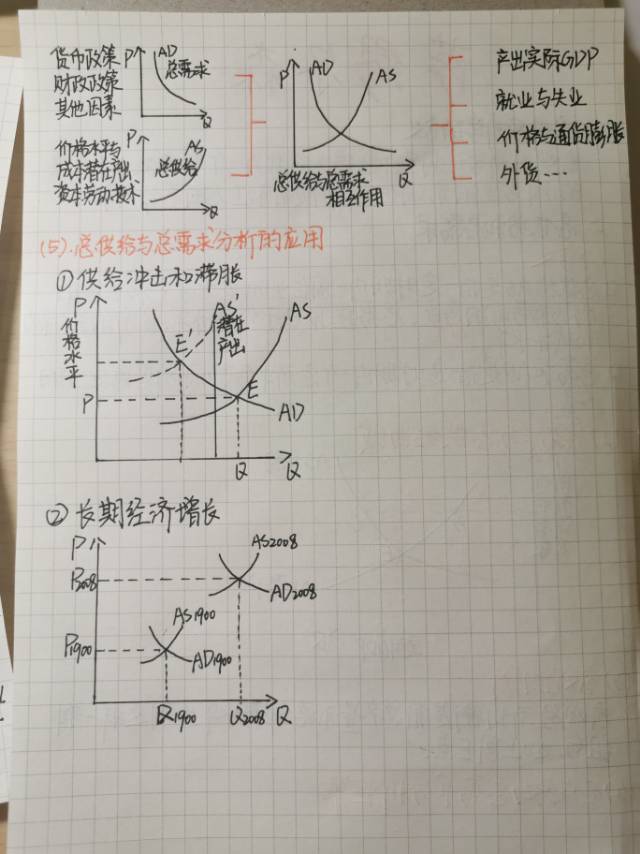 货币政策
财政政策
其他因素
P
AD
总需求
Q
价格水平与
成本潜在产出、
资本劳动、技术
P
AS
总供给
Q
P
AD
AS
Q
总供给与总需求
相互作用
产出实际GDP
就业与失业
价格与通货膨胀
外货…
(5).总供给与总需求分析的应用
①供给冲击和滞胀
P
价格水平
AS'
潜在
产出
AS
E'
E
P
AD
Q
Q
②长期经济增长
P
AS2008
P2008
AD2008
AS1900
P1900
AD1900
Q1900
Q2008
Q